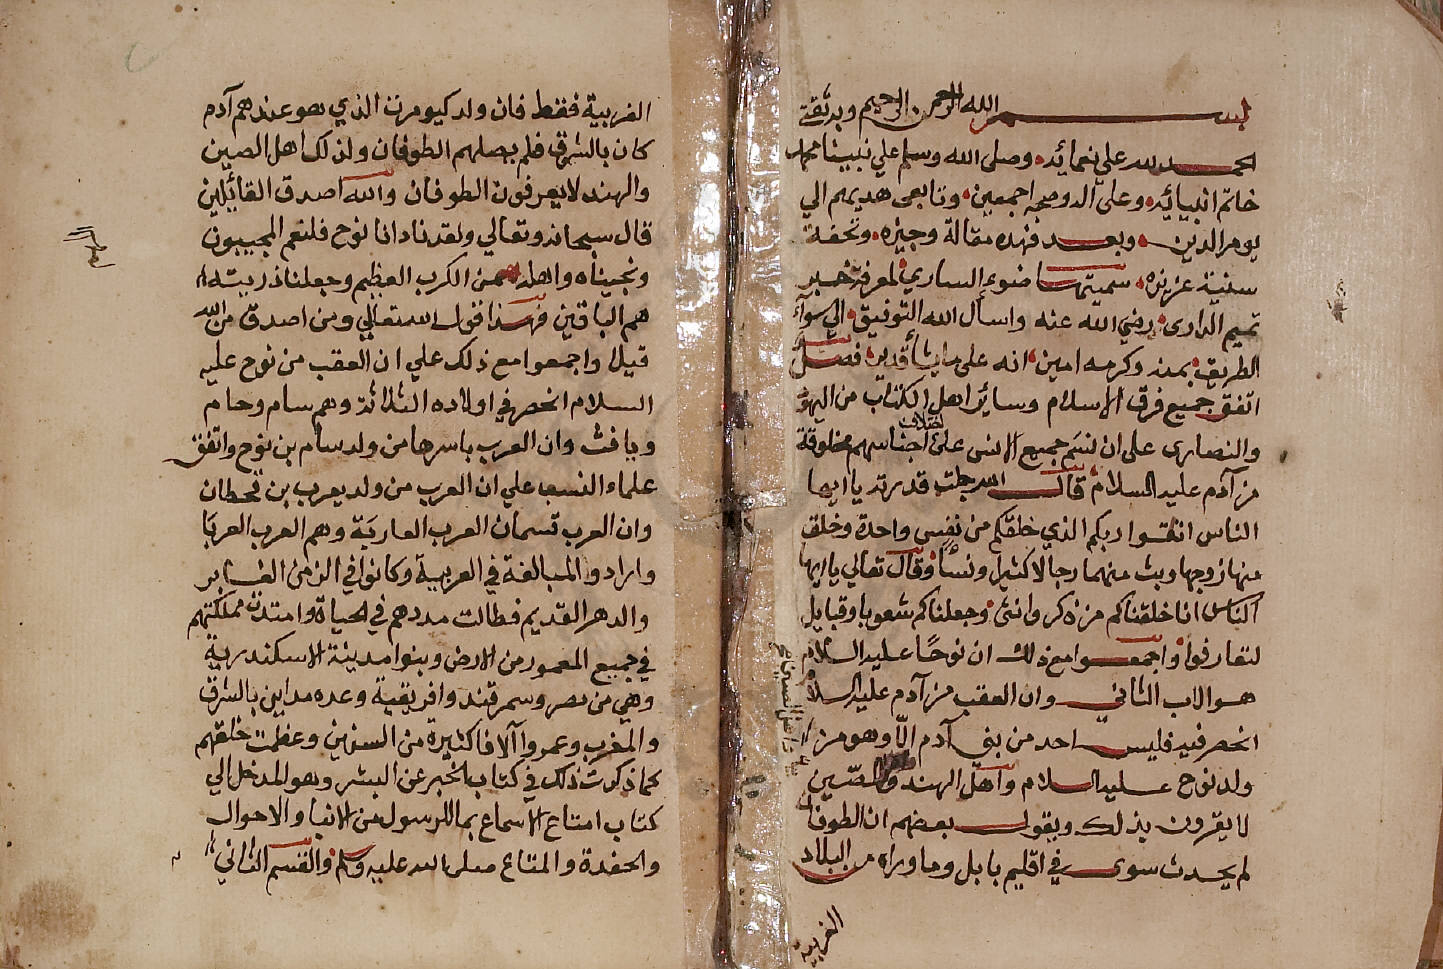 بسم الله الرحمن الرحيم وبه ثقتي
الحمد لله علي نعمائه وصلى الله وسلم علي نبينا محمد
خاتم انبيائه وعلى آله وصحبه اجمعين وتابعى هديهم الي
يوم الدين وبعد فهذه مقالة وجيزه وتحفة
سنية عزيزه سميتها ضوء الساري لمعرفة خبر
تميم الدارى رضي الله عنه واسأل الله التوفيق الي سواء
الطريق بمنه وكرمه امين انه على ما يشأ قدير فصل
اتفق جميع فرق الاسلام وسائر اهل الكتاب من اليهود
والنصارى على ان نسم جميع الانس على اختلاف اجناسهم مخلوقة
من آدم عليه السلام قال الله جلت قدرته يا ايها
الناس اتقوا ربكم الذي خلقكم من نفس واحدة وخلق
منها زوجها وبث منهما رجالا كثيرا ونسأ وقال تعالي يا ايها
الناس انا خلقناكم من ذكر وانثى وجعلناكم شعوبا وقبايل
لتعارفوا واجمعوا مع ذلك ان نوحًا عليه السلام
هو الاب الثاني وان العقب من آدم عليه السلام
انحصر فيه فليس احد من بني آدم الّا وهو من
ولد نوح عليه السلام واهل الهند والصّين
لا يقرون بذلك ويقول بعضهم ان الطوفان
لم يحدث سوى في اقليم بابل وما وراه من البلاد
الغربية
الغربية فقط فان ولد كيومرت الذي هو عندهم آدم
كان بالشرق فلم يصلهم الطوفان ولذلك اهل الصين
والهند لا يعرفون الطوفان والله اصدق القائلين
قال سبحانه وتعالي ولقد نادانا نوح فلنعم المجيبون
ونجيناه واهله من الكرب العظيم وجعلنا ذريته
هم الباقين فهذا قول الله تعالي ومن اصدق من الله
قيلا واجمعوا مع ذلك علي ان العقب من نوح عليه
السلام انحصر في اولاده الثلاثة وهم سام وحام
ويافث وان العرب باسرها من ولد سام بن نوح واتفق
علماء النسب علي ان العرب من ولد يعرب بن قحطان
وان العرب قسمان العرب العاربة وهم العرب العربا
وارادوا المبالغة في العربية وكانوا في الزمن الغابر
والدهر القديم فطالت مددهم في الحياة وامتدت مملكتهم
في جميع المعمور من الارض وبنوا مدينة الاسكندرية
وهي من مصر وسمرقند وافريقية وعده مداين بالشرق
والمغرب وعمروا آلافا كثيرة من السنين وعظمت خلقهم
كما ذكرت ذلك في كتاب الخبر عن البشر وهو المدخل الي
كتاب امتاع الاسماع بما للرسول من الانبا والاحوال
والحفدة والمتاع صلى الله عليه وسلم والقسم الثاني